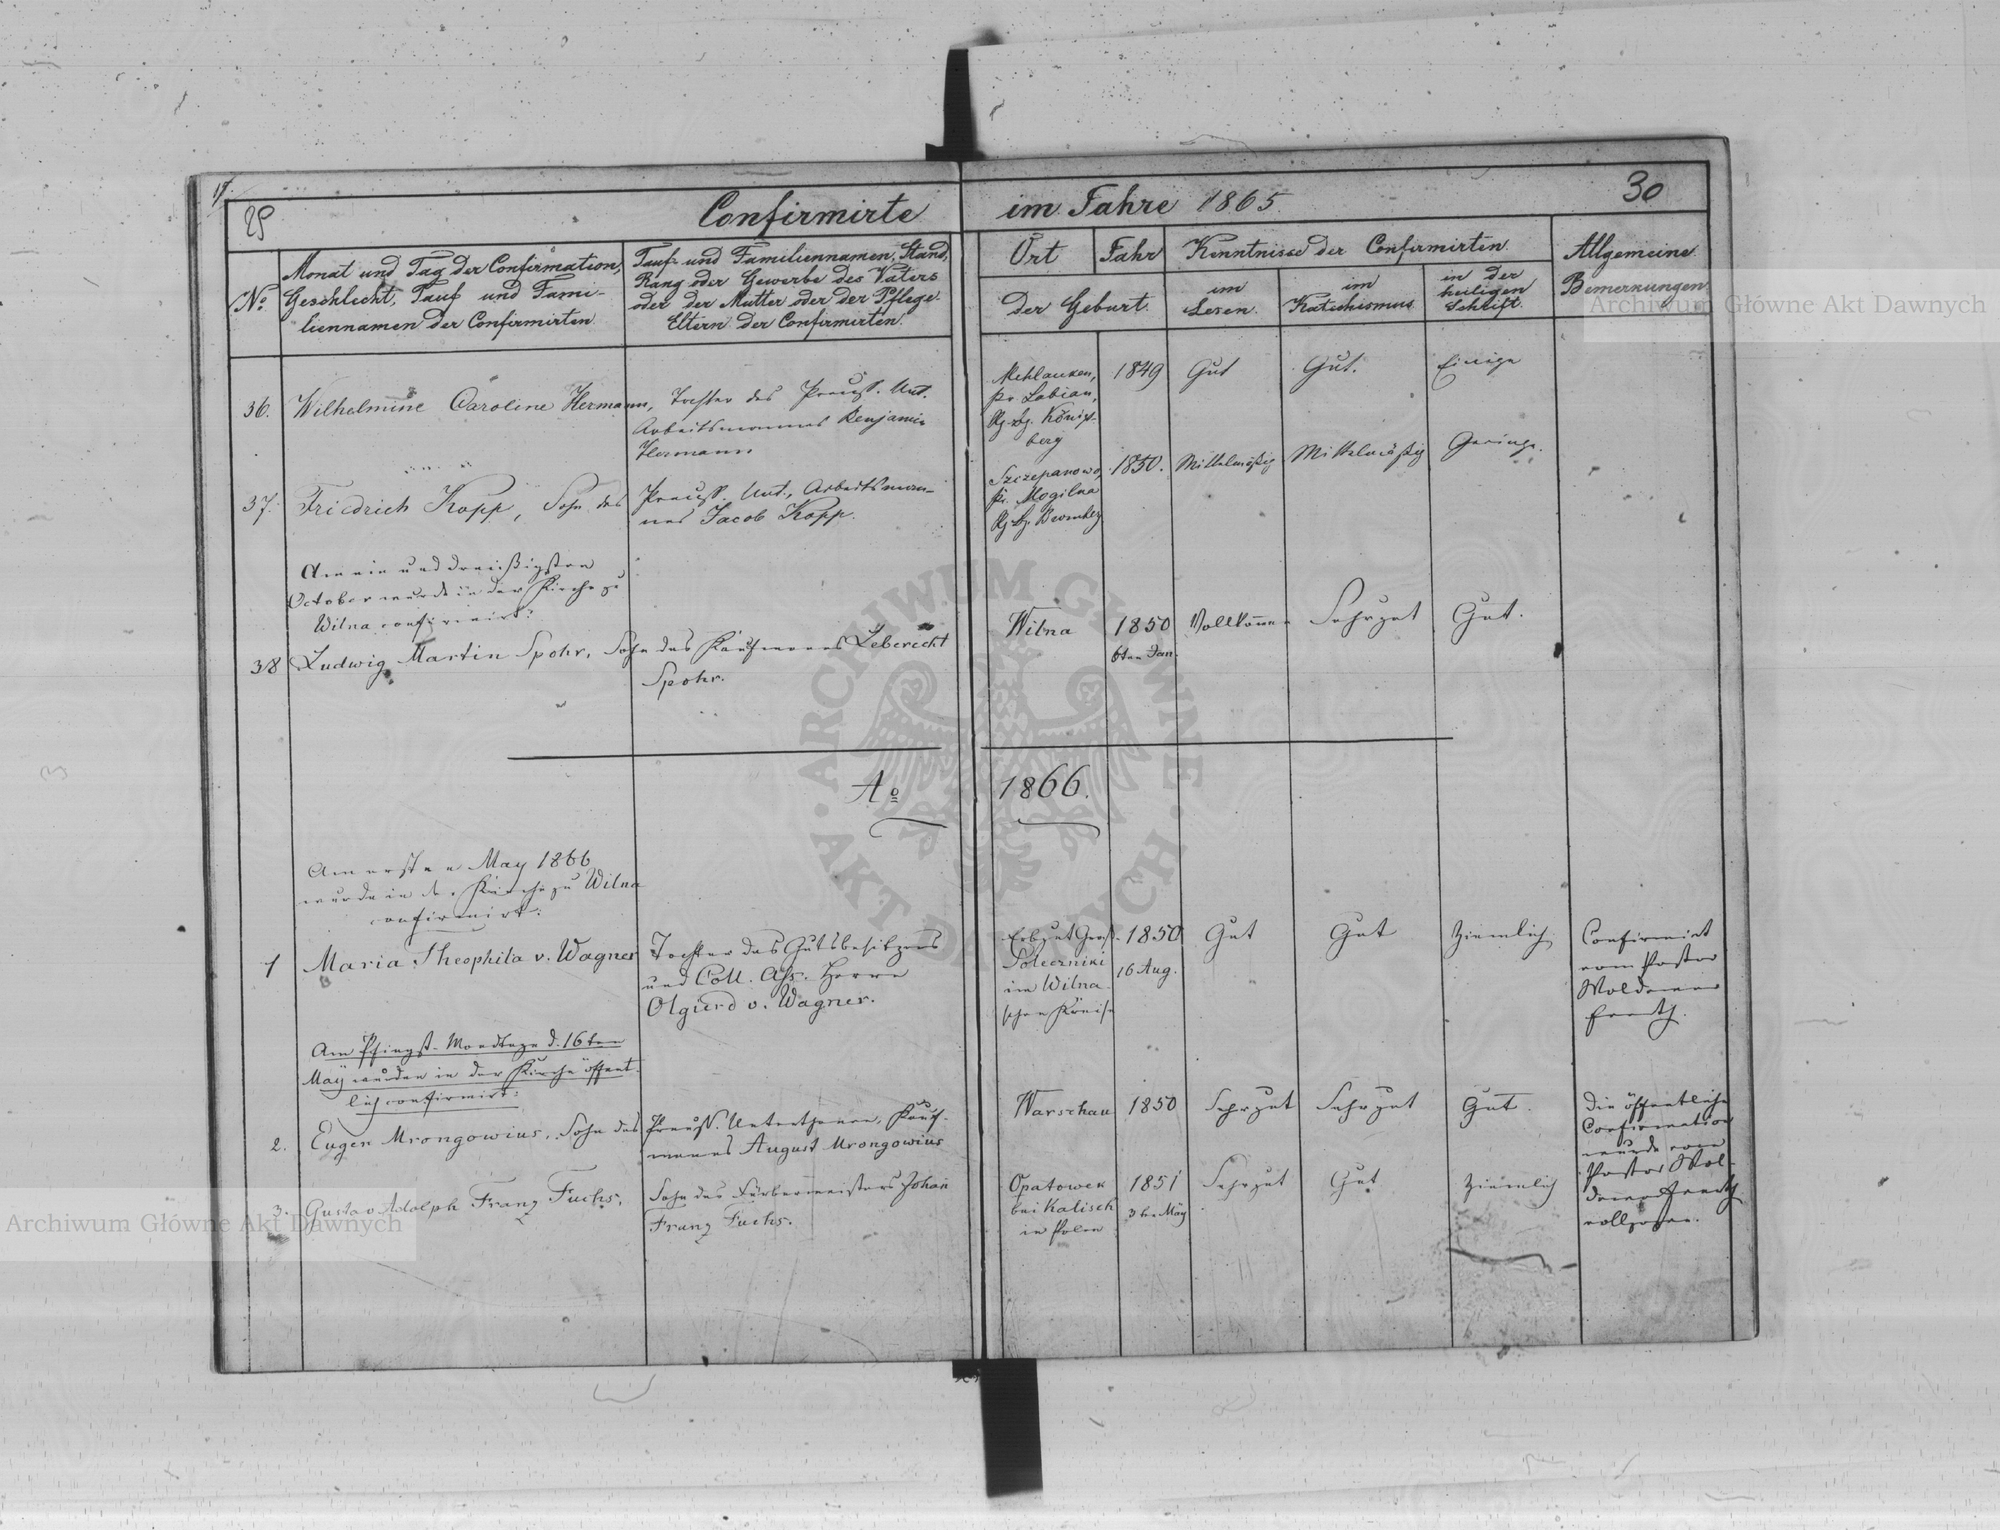 29
Confirmirte
im Jahre 1865.
30
No.
Monat und Tag der Confirmation,
Geschlecht, Tauf und Fami-
liennamen der Confirmirten.
Tauf- und Familiennamen, Stand,
Rang oder Gewerbe des Vaters
oder der Mutter oder der Pflege-
Eltern der Confirmirten.
Ort
Jahr
der Geburt.
Kenntnisse der Confirmirten.
im
Lesen.
im
Katechismus
in der
heiligen
Schrift.
Allgemeine
Bemerkungen
36. Wilhelmine Caroline Hermann, Tochter des Preuss. Unt.
Arbeitsmannes Benjamin
Hermann
Mehlauken,
Kr. Labiau,
Rg. Bz. Königs-
berg
1849
Gut
Gut.
Einige
37. Friedrich Kopp, Sohn des Preuss. Unt., Arbeitsman-
nes Jacob Kopp.
Szczepanowo,
Kr. Mogilna
Rg. Bz. Bromberg
1850.
Mittelmäßig
Mittelmäßig
Geringe.
Am ein und dreißigsten
October wurde in der Kirche zu
Wilna confirmirt:
38 Ludwig Martin Spohr, Sohn des Kaufmanns Leberecht
Spohr.
Wilna
1850
6ten Jan.
Vollkommen
Sehr gut
Gut.
Ao 1866.
Am ersten May 1866
wurde in der Kirche zu Wilna
confirmirt:
1 Maria Theophila v. Wagner
Tochter des Gutsbesitzers
und Coll. Ass. Herrn
Olgierd v. Wagner.
Erbgut Gross-
Soleczniki
im Wilna-
schen Kreise
1850
16 Aug.
Gut
Gut
Ziemlich
Confirmirt
vom Pastor
Woldemar
Am Pfingst-Montage d. 16ten
May wurden in der Kirche öffent-
lich confirmirt:
2. Eugen Mrongowius, Sohn des Preuss. Unterthanen, Kauf-
manns August Mrongowius
Warschau
1850
Sehr gut
Sehr gut
Gut.
Die öffentliche
Confirmation
wurde vom
Pastor Wol-
demar
vollzogen.
3. Gustav Adolph Franz Fuchs,
Sohn des Färbermeisters Johan
Franz Fuchs.
Opatowek
bei Kalisch
in Polen
1851
3ten May
Sehr gut
Gut
Ziemlich
Archiwum Główne Akt Dawnych
Archiwum Główne Akt Dawnych
ARCHIWUM GŁÓWNE AKT DAWNYCH